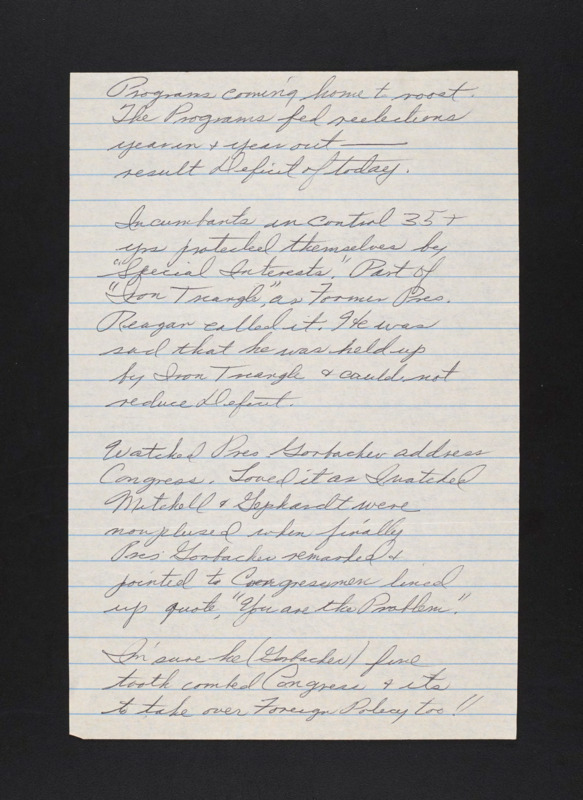 Programs coming home to roost.
The Programs fed reelections
year in & year out —
result Deficit of today.
Incumbants in control 35+
yrs protected themselves by
"Special Interests." Part of
"Iron Triangle," as Former Pres.
Reagan called it. He was
sad that he was held up
by Iron Triangle & could not
reduce Deficit.
Watched Pres Gorbachev address
Congress. Loved it as I watched
Mitchell & Gephardt were
nonplused when finally
Pres Gorbachev remarked &
pointed to Congressmen lined
up quote, "You are the Problem."
I'm sure he (Gorbachev) fine
tooth combed Congress & its
to take over Foreign Policy too!!